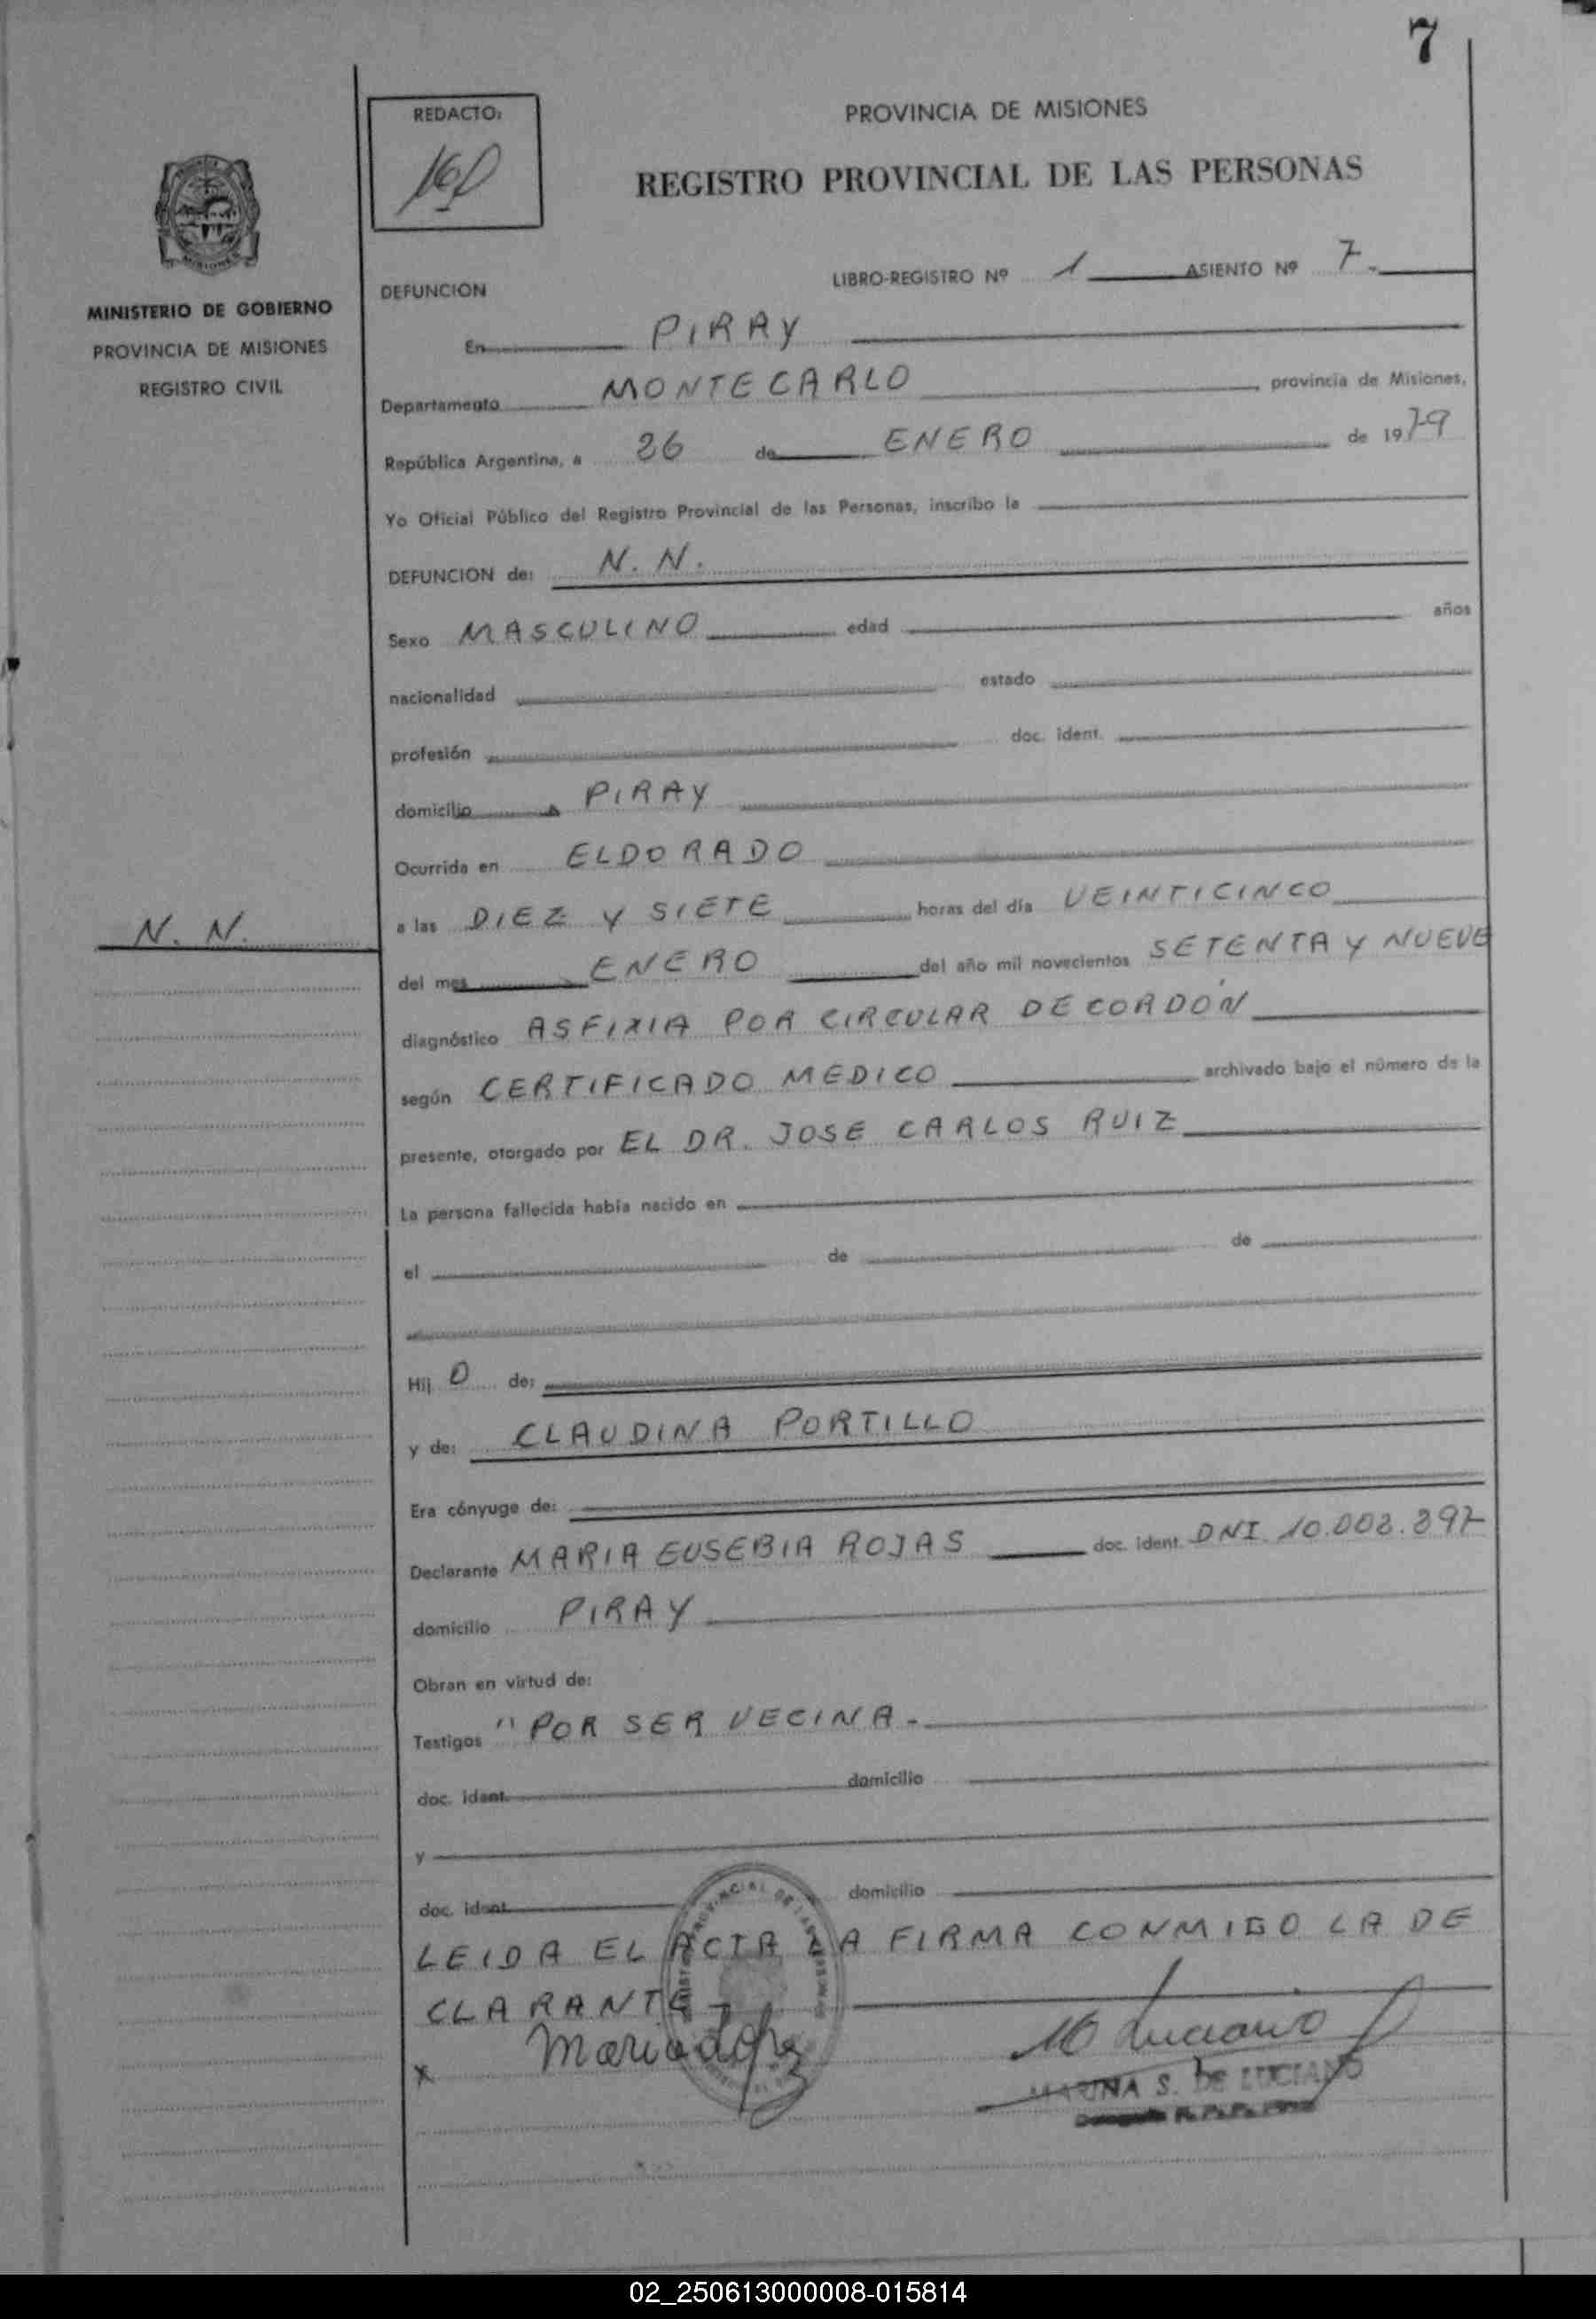 7
REDACTO:
PROVINCIA DE MISIONES
REGISTRO PROVINCIAL DE LAS PERSONAS
MISIONES
MINISTERIO DE GOBIERNO
PROVINCIA DE MISIONES
REGISTRO CIVIL
LIBRO-REGISTRO Nº 1 ASIENTO Nº 7.
DEFUNCION
En PIRAY
Departamento MONTECARLO provincia de Misiones,
República Argentina, a 26 de ENERO de 1979
Yo Oficial Público del Registro Provincial de las Personas, inscribo la
DEFUNCION de: N. N.
Sexo MASCULINO edad años
nacionalidad estado
profesión doc. ident.
domicilio PIRAY
Ocurrida en ELDORADO
N. N.
a las DIEZ Y SIETE horas del día VEINTICINCO
del mes ENERO del año mil novecientos SETENTA Y NUEVE
diagnóstico ASFIXIA POR CIRCULAR DE CORDÓN
según CERTIFICADO MEDICO archivado bajo el número de la
presente, otorgado por EL DR. JOSE CARLOS RUIZ
La persona fallecida había nacido en
el de de
Hij O de:
y de: CLAUDINA PORTILLO
Era cónyuge de:
Declarante MARIA EUSEBIA ROJAS doc. ident. DNI 10.003.897
domicilio PIRAY
Obran en virtud de:
Testigos " POR SER VECINA.
doc. ident. domicilio
y
doc. ident. domicilio
LEIDA EL ACTA LA FIRMA CONMIGO LA DE
CLARANTE
x Maria
M Luciano
MARINA S. DE LUCIANO
02_250613000008-015814